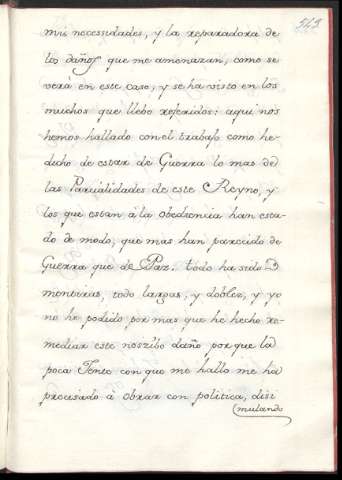 343
mis necesidades, y la reparadora de
los daños que me amenazan, como se
verá en este caso, y se ha visto en los
muchos que llebo referidos: aqui nos
hemos hallado con el trabajo como he-
dicho de estar de Guerra lo mas de
las Parcialidades de este Reyno, y
los que estan à la obediencia han esta-
do de modo, que mas han parecido de
Guerra que de Paz. todo ha sido
mentiras, todo largas, y doblez, y yo
no he podido por mas que he hecho re-
mediar este noszibo daño por que la
poca Jente con que me hallo me ha
precisado à obrar con politica, disi
mulando